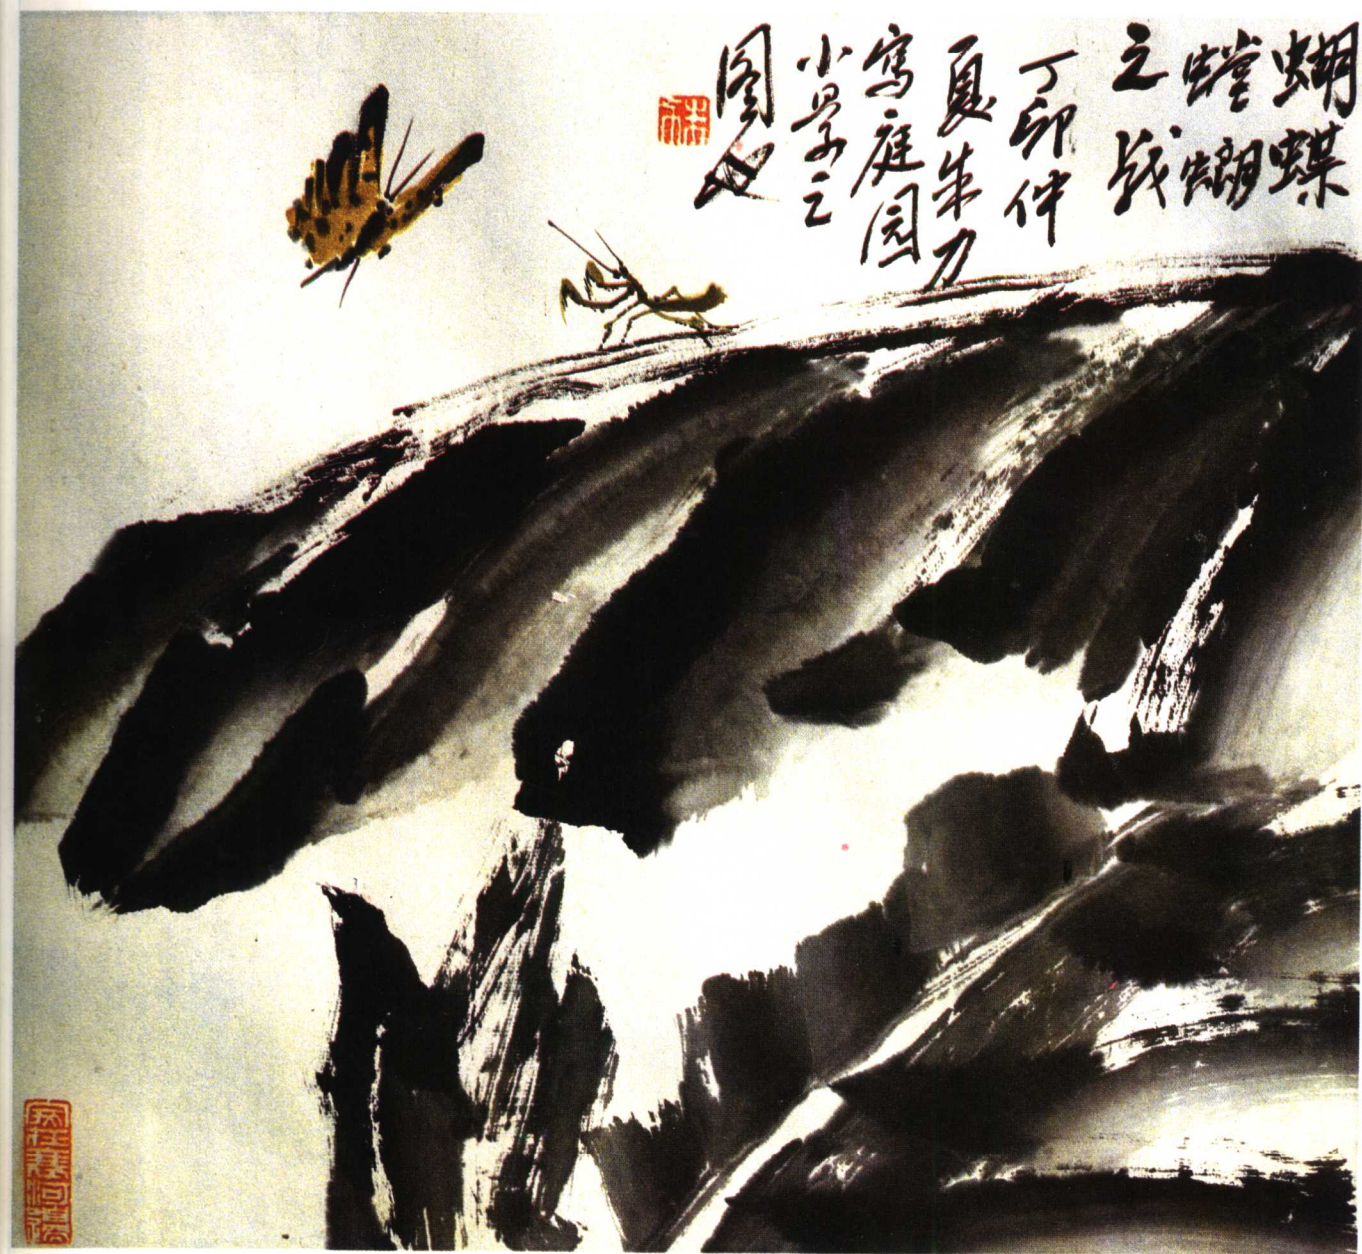 蝴蝶
螳螂
之战
丁卯仲
夏朱力
寫庭园
小景之
图也